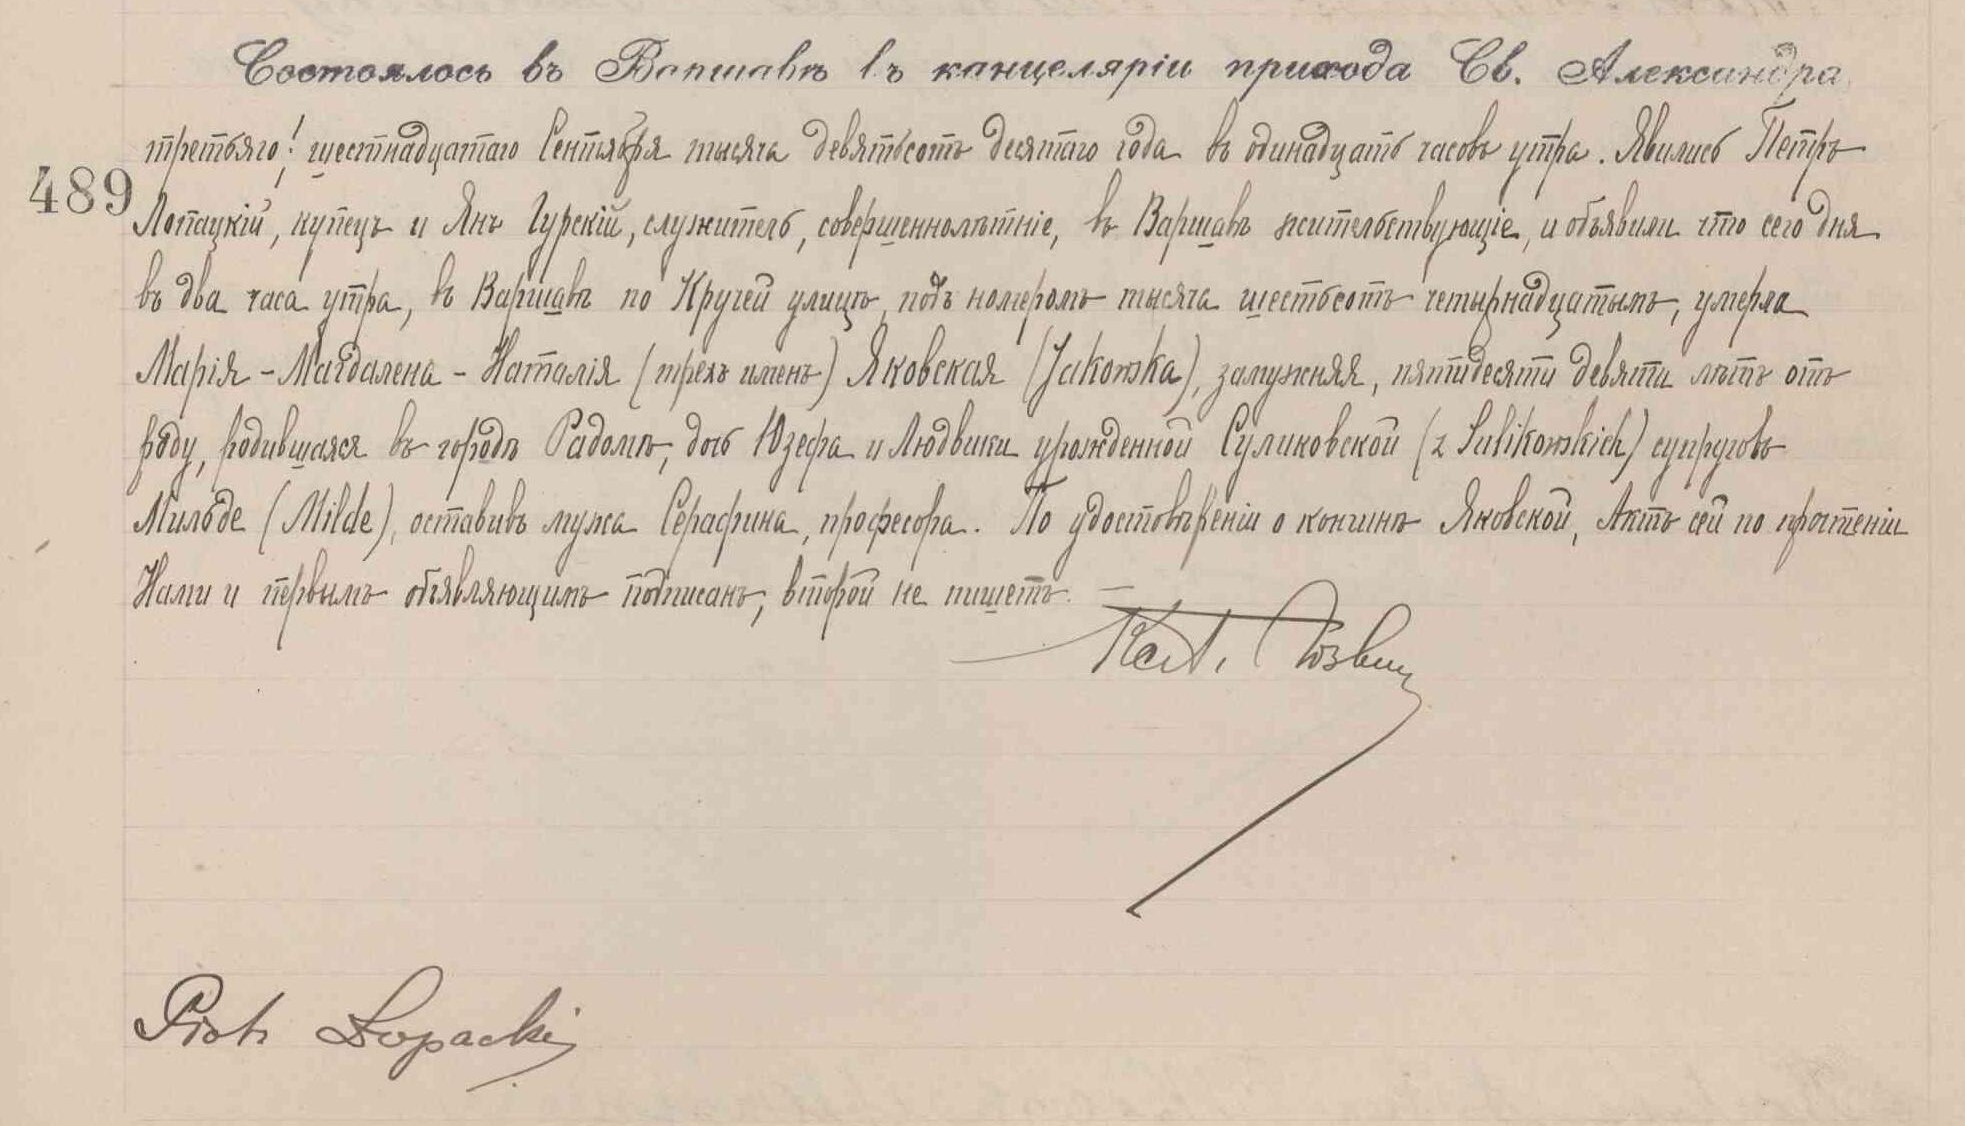 Состоялось въ Варшавѣ въ канцеляріи прихода Св. Александра
третьяго! шестнадцатаго Сентября тысяча девятьсотъ десятаго года въ одинадцать часовъ утра. Явились Петръ
489
Лопацкій, купецъ и Янъ Гурскій, служитель, совершеннолѣтніе, въ Варшавѣ жительствующіе, и объявили что сего дня
въ два часа утра, въ Варшавѣ по Кручей улицѣ, подъ номеромъ тысяча шестьсотъ четырнадцатымъ, умерла
Марія - Магдалена - Наталія (трехъ именъ) Яковская (Jakowska), замужняя, пятидесяти девяти лѣтъ отъ
роду, родившаяся въ городѣ Радомѣ, дочь Юзефа и Людвики урожденной Суликовской (z Sulikowskich) супруговъ
Мильде (Milde), оставивъ мужа Серафина, професора. По удостовѣреніи о кончинѣ Яковской, Актъ сей по прочтеніи
Нами и первымъ объявляющимъ подписанъ, второй не пишетъ. —
Piotr Łopacki